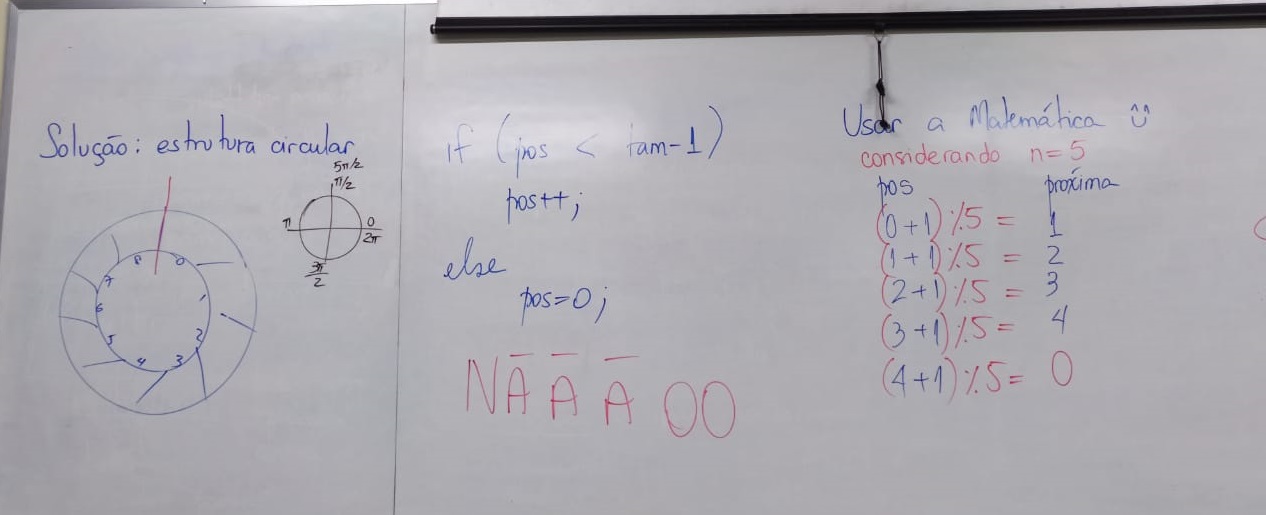 Solução: estrutura circular
5π/2
π/2
π
0
2π
3π
2
8 0
7
1
6
2
5
4 3
if (pos < tam-1)
pos++;
else
pos=0;
NÃÃÃOO
Usar a Matemática
considerando n=5
pos próxima
(0+1)%5 = 1
(1+1)%5 = 2
(2+1)%5 = 3
(3+1)%5 = 4
(4+1)%5 = 0